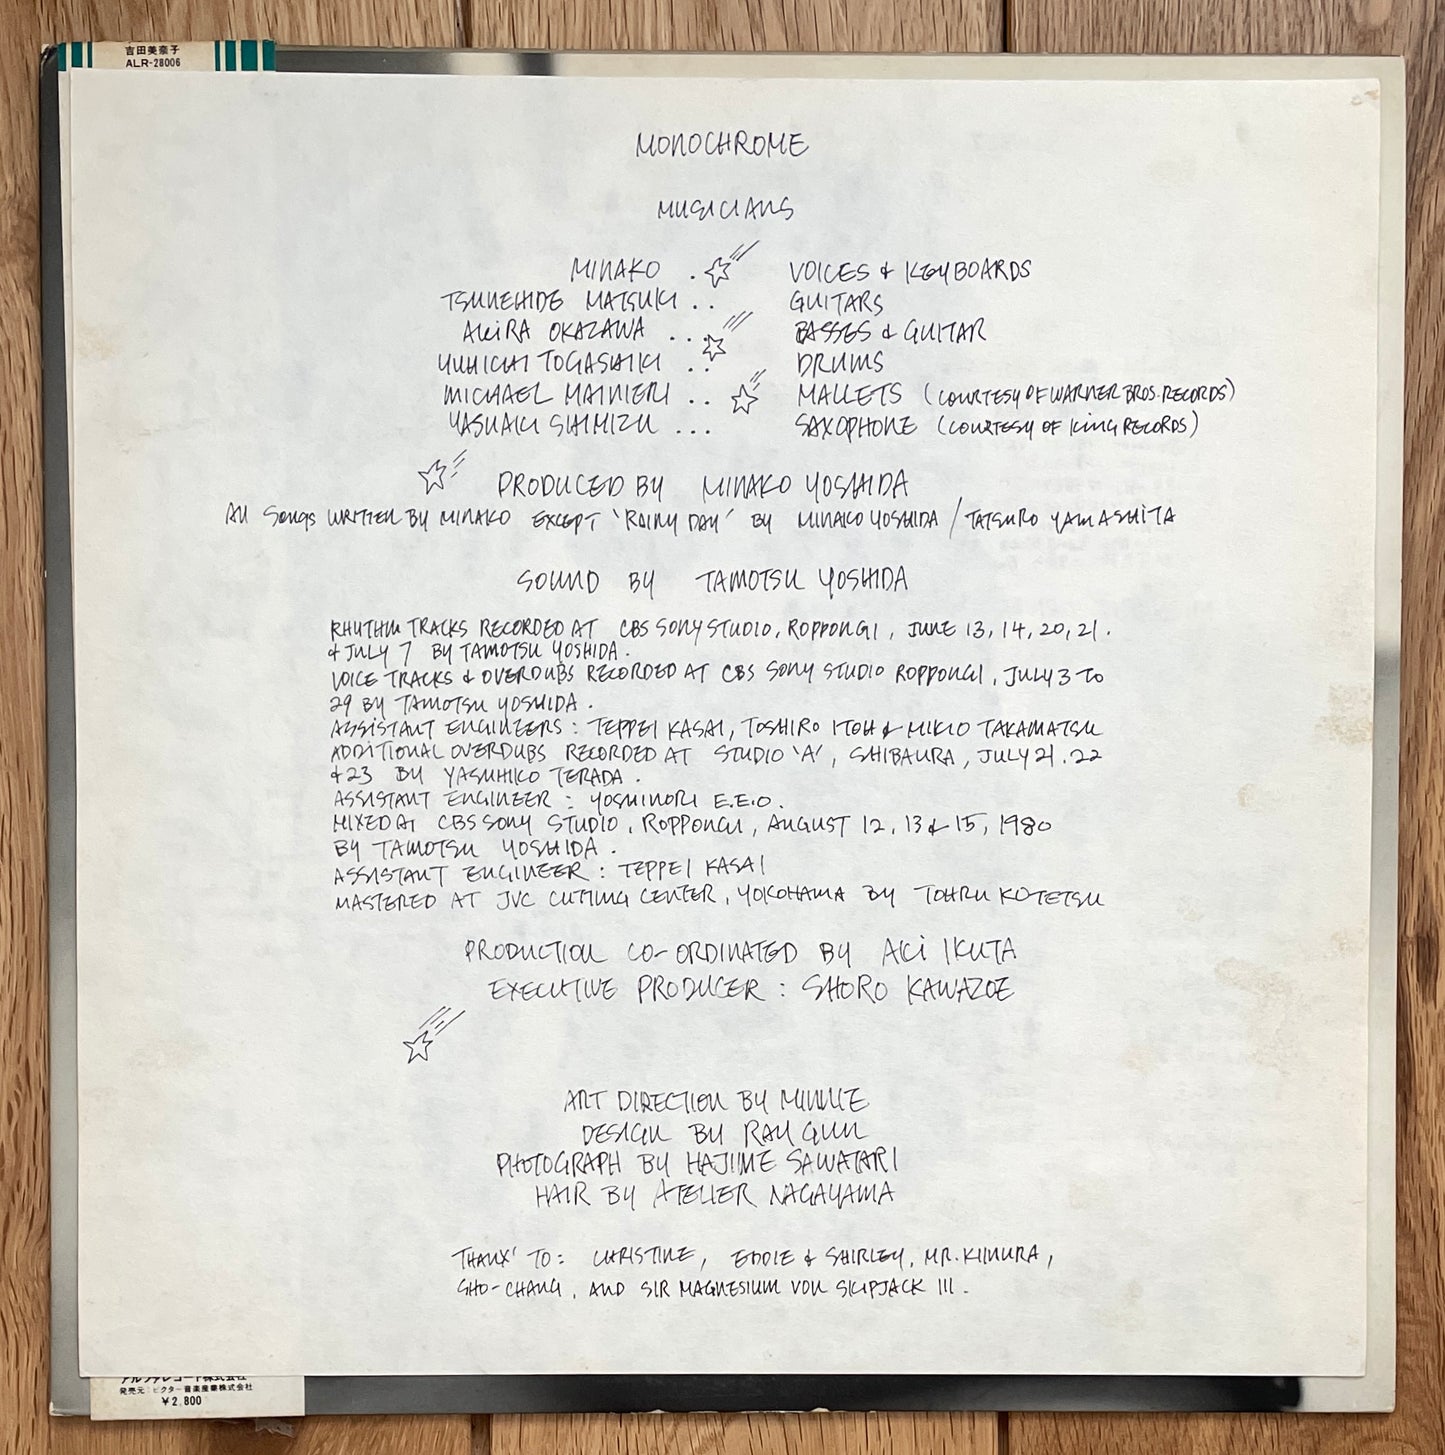 吉田美奈子
ALR-28006
MONOCHROME
MUSICIANS
MINAKO . VOICES & KEYBOARDS
TSUNEHIDE MATSUKI .. GUITARS
AKIRA OKAZAWA ... BASSES & GUITAR
YUHICHI TOGASHIKI .. DRUMS
MICHAEL MAINIERI .. MALLETS (COURTESY OF WARNER BROS. RECORDS)
YASUAKI SHIMIZU ... SAXOPHONE (COURTESY OF KING RECORDS)
PRODUCED BY MINAKO YOSHIDA
All Songs WRITTEN BY MINAKO EXCEPT 'RAINY DAY' BY MINAKO YOSHIDA / TATSURO YAMASHITA
SOUND BY TAMOTSU YOSHIDA
RHYTHM TRACKS RECORDED AT CBS SONY STUDIO, ROPPONGI, JUNE 13, 14, 20, 21.
& JULY 7 BY TAMOTSU YOSHIDA.
VOICE TRACKS & OVERDUBS RECORDED AT CBS SONY STUDIO ROPPONGI, JULY 3 TO
29 BY TAMOTSU YOSHIDA.
ASSISTANT ENGINEERS : TEPPEI KASAI, TOSHIRO ITOH & MIKIO TAKAMATSU
ADDITIONAL OVERDUBS RECORDED AT STUDIO 'A', SHIBAURA, JULY 21. 22
& 23 BY YASUHIKO TERADA.
ASSISTANT ENGINEER : YOSHINORI E.E.O.
MIXED AT CBS SONY STUDIO, ROPPONGI, AUGUST 12, 13 & 15, 1980
BY TAMOTSU YOSHIDA.
ASSISTANT ENGINEER : TEPPEI KASAI
MASTERED AT JVC CUTTING CENTER, YOKOHAMA BY TOHRU KOTETSU
PRODUCTION CO-ORDINATED BY AKI IKUTA
EXECUTIVE PRODUCER : SHORO KAWAZOE
ART DIRECTION BY MINNIE
DESIGN BY RAY GUN
PHOTOGRAPH BY HAJIME SAWATARI
HAIR BY ATELIER NAGAYAMA
THANX' TO : CHRISTINE, EDDIE & SHIRLEY, MR. KIMURA,
SHO-CHANG, AND SIR MAGNESIUM VON SKIPJACK III.
アルファレコード株式会社
発売元:ビクター音楽産業株式会社
¥2,800